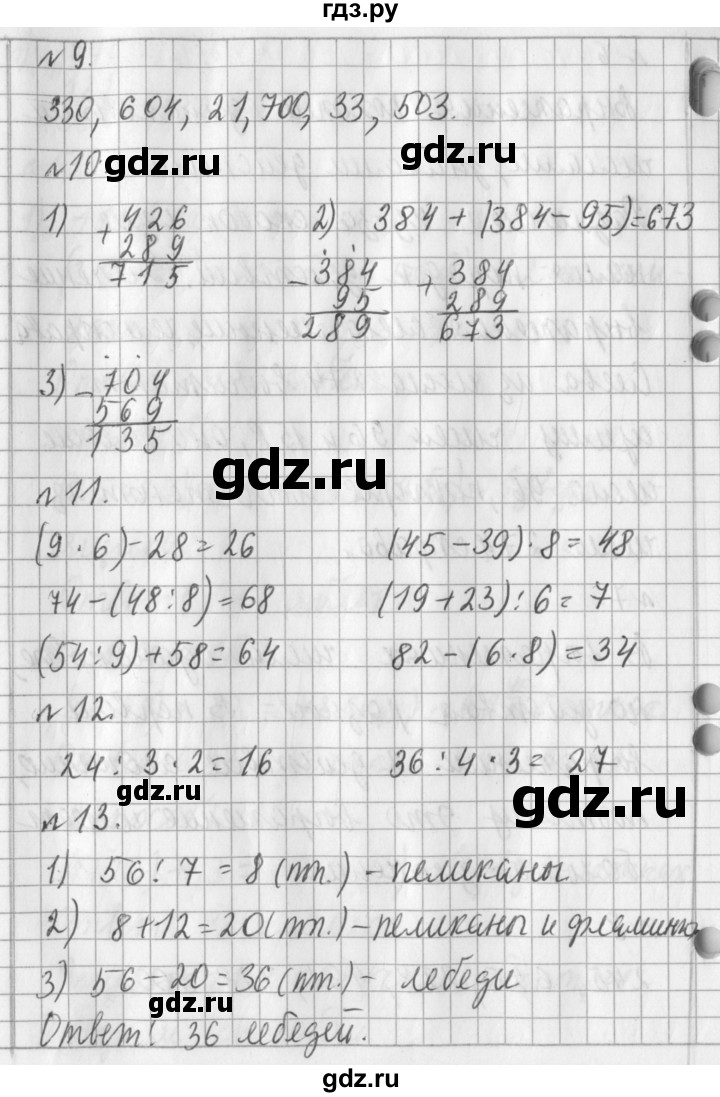 гдз.ру
№ 9.
330, 604, 21, 700, 33, 503.
gdz.ru
№10
gdz.ru
1) + 426
289
715
2) 384 + (384 - 95) = 673
- 384
95
289
+ 384
289
673
3) - 704
569
135
gdz.ru
№ 11.
(9 · 6) - 28 = 26 (45 - 39) · 8 = 48
74 - (48 : 8) = 68 (19 + 23) : 6 = 7
(54 : 9) + 58 = 64 82 - (6 · 8) = 34
№ 12.
24 : 3 · 2 = 16 36 : 4 · 3 = 27
gdz.ru
gdz.ru
№ 13.
1) 56 : 7 = 8 (пт.) - пеликаны
2) 8 + 12 = 20 (пт.) - пеликаны и фламинго
3) 56 - 20 = 36 (пт.) - лебеди
gdz.ru
Ответ: 36 лебедей.
gdz.ru